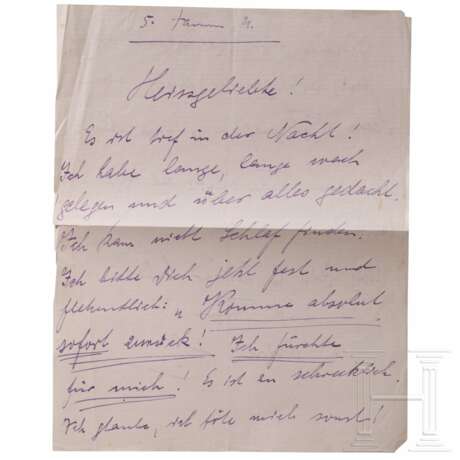 5. Januar 31.
Heissgeliebte!
Es ist tief in der Nacht!
Ich habe lange, lange wach
gelegen und über alles gedacht.
Ich kann nicht Schlaf finden.
Ich bitte Dich jetzt fest und
flehentlich: „Komme absolut
sofort zurück! Ich fürchte
für mich! Es ist zu schrecklich.
Ich glaube, ich töte mich sonst!